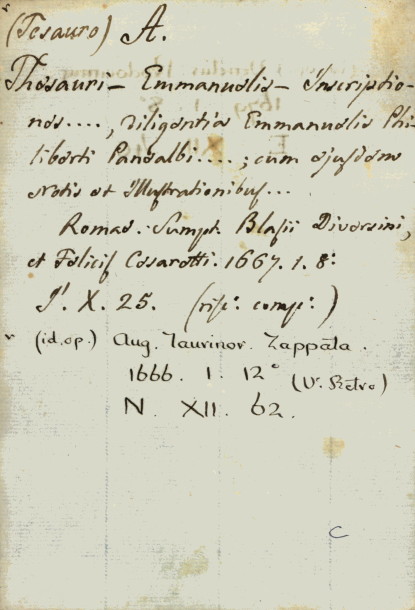 (Tesauro) A.
Thesauri – Emmanuelis – Inscriptio-
nes...., Diligentia Emmanuelis Phi-
liberti Panealbi....; cum ejusdem
Notis et Illustrationibus...
Romae. Sumpt. Blasii Diversini,
et Felicis Cesaretti. 1667. 1. 8:
X. 25.
(id. op.) Aug. Taurinor. Zappata.
1666. 1. 12° (V. Retro)
N. XII. 62.
C